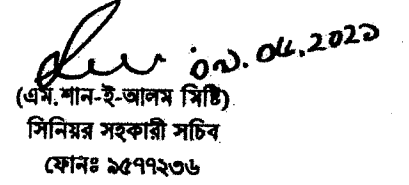 ০১.০৮.২০২১
(এম.শান-ই-আলম মিষ্টি)
সিনিয়র সহকারী সচিব
ফোনঃ ৯৫৭৭২৩৬